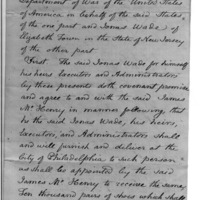 Department of War of the United States
of America in behalf of the said States
of the one part and Jonas Wade, of
Elizabeth Town in the State of New Jersey,
of the other part.
First. The said Jonas Wade for himself
his heirs Executors and Administrators
by these presents doth covenant promise
and agree to and with the said James
Mc Henry, in manner following, that
he the said Jonas Wade, his heirs,
Executors, and Administrators shall
and will furnish and deliver at the
City of Philadelphia to such person
as shall be appointed by the said
James Mc Henry to receive the same,
Ten thousand pairs of shoes which shall